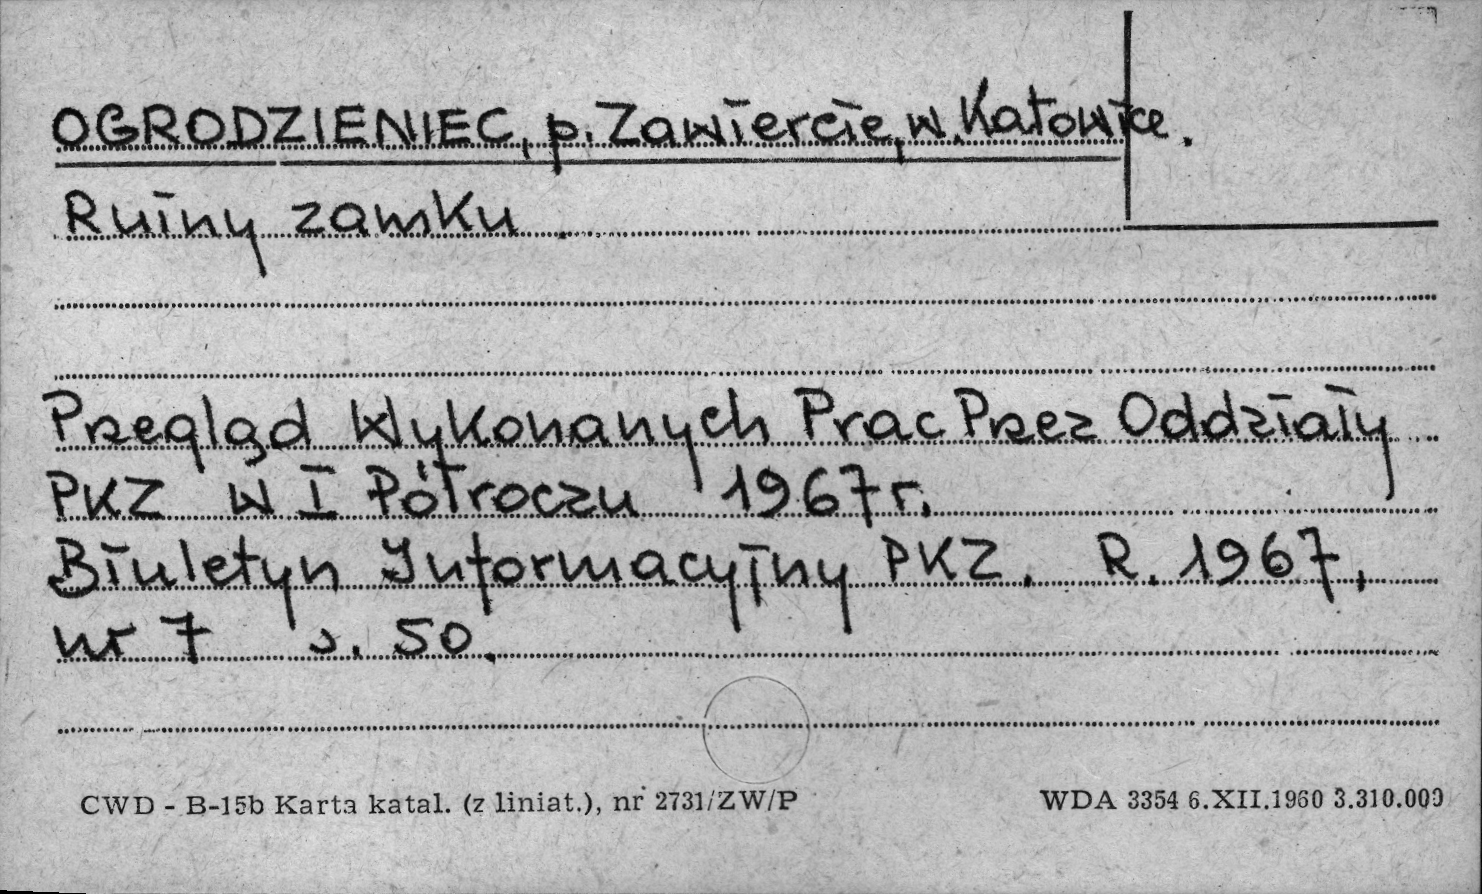 OGRODZIENIEC, p. Zawiercie, w. Katowice.
Ruiny zamku.
Przegląd Wykonanych Prac Przez Oddziały
PKZ w I Półroczu 1967 r.
Biuletyn Informacyjny PKZ. R. 1967,
nr 7 s. 50.
CWD - B-15b Karta katal. (z liniat.), nr 2731/ZW/P
WDA 3354 6.XII.1960 3.310.000